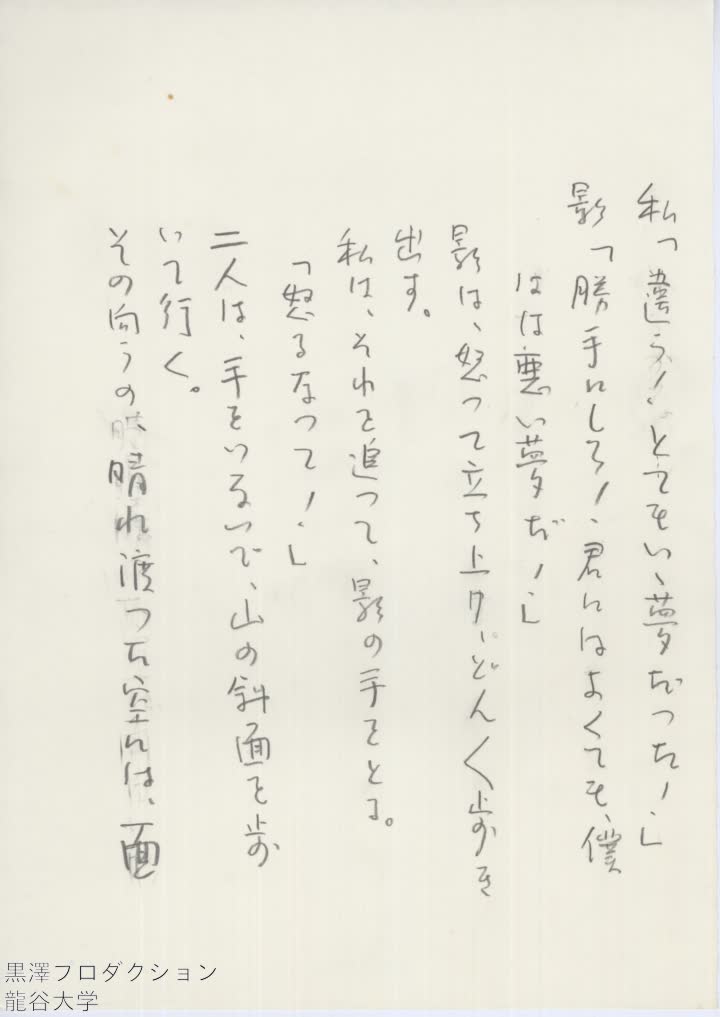 私「違う！とてもいゝ夢だった！」
影「勝手にしろ！、君にはよくても、僕
には悪い夢だ！」
影は、怒って立ち上り、どん〱歩き
出す。
私は、それを追って、影の手をとる。
「怒るなって！」
二人は、手をつないで、山の斜面を歩
いて行く。
その向うの、晴れ渡った空には、面
黒澤プロダクション
龍谷大学